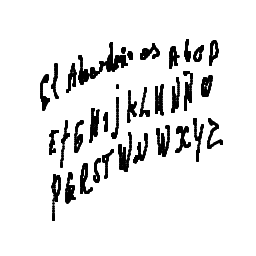 El Abecedario es A b c D
E f G H I j K L M N Ñ O
P Q R S T U V W X Y Z